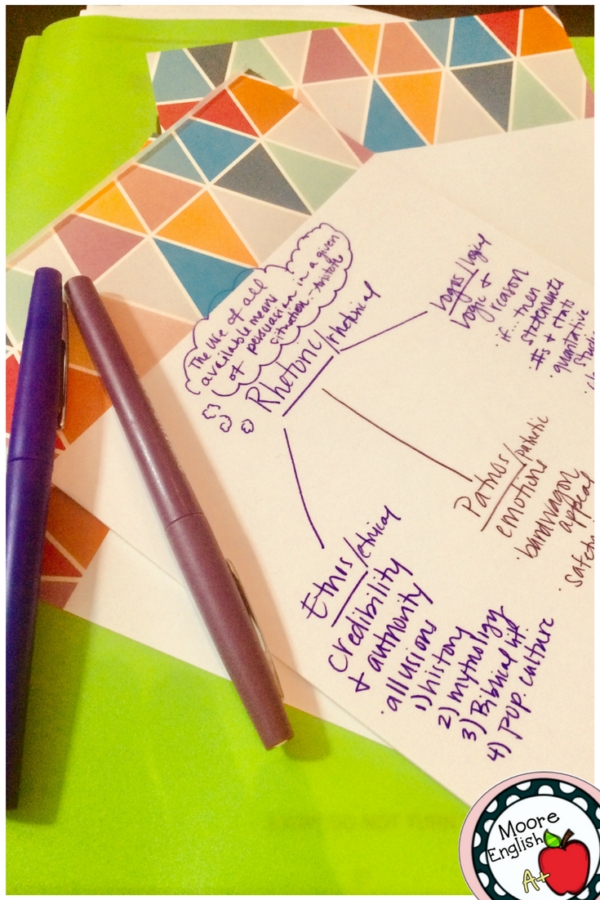 The use of all
available means
of persuasion in a given
situation...
Rhetoric/rhetorical
Logos/logical
Logic +
reason
· if...then
statements
· #s + stats
· quantitative
Pathos/pathetic
emotions
· bandwagon
appeal
· safety
Ethos/ethical
Credibility
+ authority
· allusions
1) history
2) mythology
3) Biblical lit.
4) pop. culture
Moore
English
A+